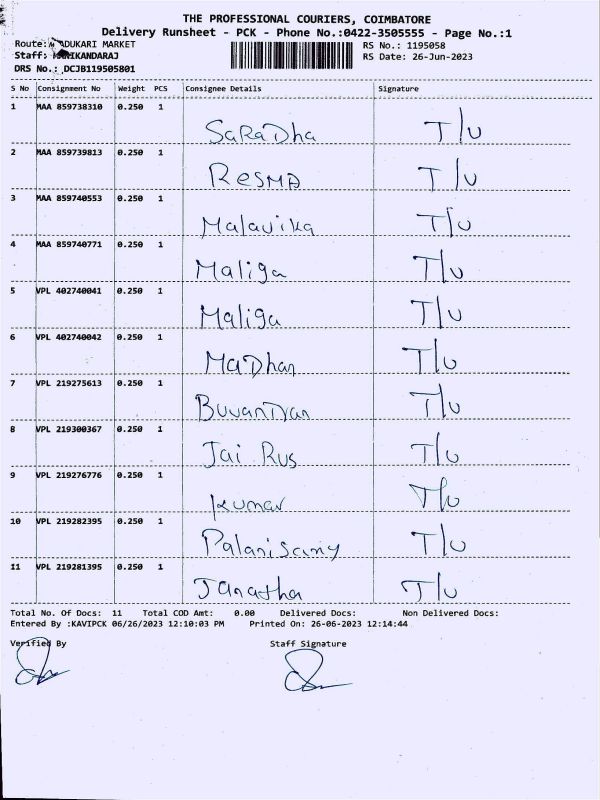 THE PROFESSIONAL COURIERS, COIMBATORE
Delivery Runsheet - PCK - Phone No.:0422-3505555 - Page No.:1
Route: DUKARI MARKET RS No.: 1195058
Staff: IKANDARAJ RS Date: 26-Jun-2023
DRS No.: DCJB119505801
S No Consignment No Weight PCS Consignee Details Signature
1 MAA 859738310 0.250 1 SaRaDha T/u
2 MAA 859739813 0.250 1 ResMA T/u
3 MAA 859740553 0.250 1 Malavika T/u
4 MAA 859740771 0.250 1 Maliga T/u
5 VPL 402740041 0.250 1 Maliga T/u
6 VPL 402740042 0.250 1 MaDhan T/u
7 VPL 219275613 0.250 1 T/u
8 VPL 219300367 0.250 1 Jai Rus T/u
9 VPL 219276776 0.250 1 kumar T/u
10 VPL 219282395 0.250 1 Palanisamy T/u
11 VPL 219281395 0.250 1 Janatha T/u
Total No. Of Docs: 11 Total COD Amt: 0.00 Delivered Docs: Non Delivered Docs:
Entered By :KAVIPCK 06/26/2023 12:10:03 PM Printed On: 26-06-2023 12:14:44
Verified By Staff Signature